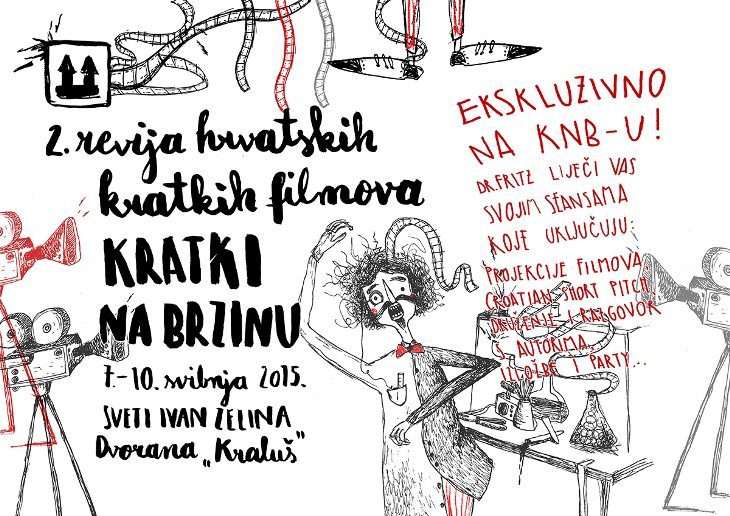 2. revija hrvatskih
kratkih filmova
KRATKI
NA BRZINU
7.-10. svibnja 2015.
SVETI IVAN ZELINA
Dvorana „Kraluš"
EKSKLUZIVNO
NA KNB-U!
DR.FRITZ LIJEČI VAS
SVOJIM SEANSAMA
KOJE UKLJUČUJU:
PROJEKCIJE FILMOVA,
CROATIAN SHORT PITCH,
DRUŽENJE I RAZGOVOR
S AUTORIMA,
IZLOŽBE I PARTY...